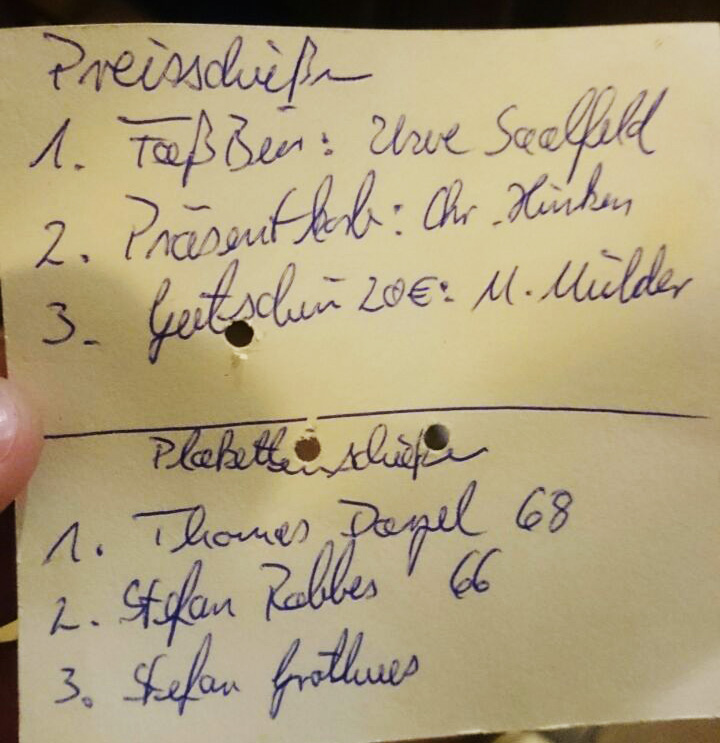 Preisschießen
1. Faß Bier: Uwe Saalfeld
2. Präsentkorb: Chr. Hinken
3. Gutschein 20€: M. Mülder
Plakettenschießen
1. Thomas 68
2. Stefan Rabbes 66
3. Stefan Grothues